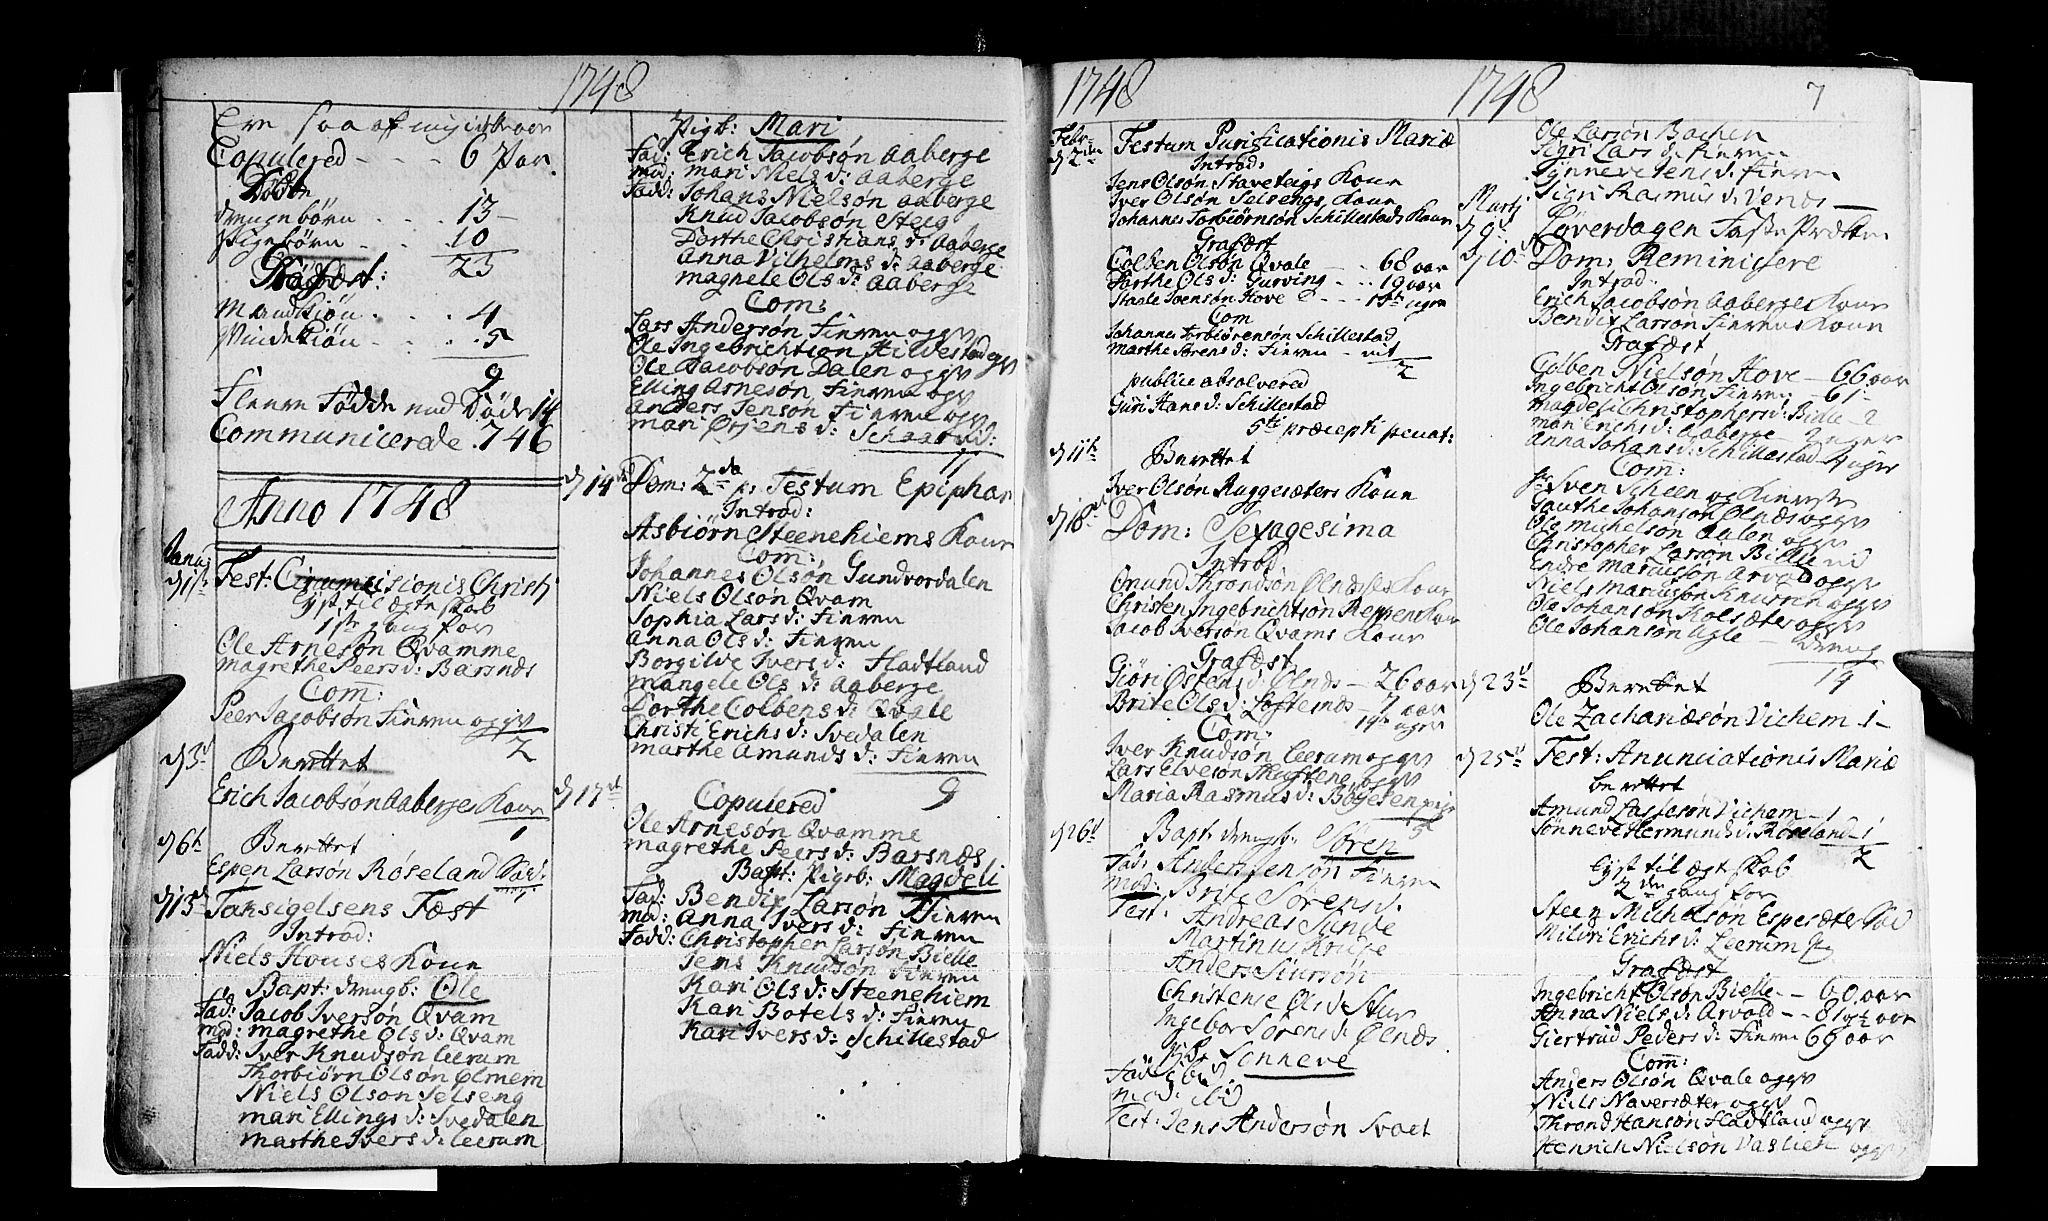 1748
Copulered - - - 6 Par.
Døbte
drengebørn . . . 13
Pigebørn . . . 10
23
Grafæst:
Mandkiøn . . . 4
Qvindekiøn . . . 5
9
Fleere Fødde end Døde 14
Communicerede . 746
Anno 1748
Januarj
d 1ste Fest: Circumcisionis Christi
lyst til ægteskab
1ste gang for
Ole Arnesøn Qvamme
magrethe Peers d: Barsnæs
Com:
Peer Jacobsøn Finren og gv
2
d 3d Berettet
Erich Jacobsøn Aaberges Kone
1
d 6t Berettet
Espen Larsøn Røseland
d 13d Taksigelsens Fæst
Introd:
Niels Houses Kone
Bapt: drengb: Ole
Fad: Jacob Iversøn Qvam
mod: magrethe Ols d: Qvam
Fadd: Iver Knudsøn Leerum
Thorbiørn Olsøn Ølmem
Niels Olsøn Selseng
mari Ellings d: Svedalen
marthe Ivers d: Leerum
Pigb: Mari
Fad: Erich Jacobsøn Aaberge
md: mari Niels d: Aaberge
Fadd: Johans Nielsøn Aaberge
Knud Jacobsøn Steig
Dorthe Christians d: Aaberge
Anna Vilhelms d: Aaberge
magnele Ols d: Aaberge
Com:
Lars Andersøn Finren og gv
Ole Ingebrichtsøn Hildestad og gv
Ole Jacobsøn Dalen og gv
Elling Arnesøn Finren og gv
Anders Jensøn Finren og gv
mari Ørjens d:
11
d 14de Dom: 2da p: Festum Epiphan
Introd:
Asbiørn Steenehiems Kone
Com:
Johannes Olsøn Gundvordalen
Niels Olsøn Qvam
Sophia Lars d: Finren
Anna Ols d: Finren
Borgilde Ivers d: Fladtland
mangele Ols d: Aaberge
Dorthe Colbens d: Qvale
Christi Erichs d: Svedalen
marthe Amunds d: Finren
9
d 17de Copulered
Ole Arnesøn Qvamme
magrethe Peers d: Barsnæs
Bapt: Pigeb: Magdeli
Fad: Bendix Larsøn Finren
md: Anna Ivers d: Finren
Fadd: Christopher Larsøn Bielle
Jens Knudsøn Finren
Kari Ols d: Steenehiem
Kari Botels d: Finren
Kari Ivers d: Schillestad
1748
Febr:
d 2den Festum Purificationis Mariæ
Introd:
Jens Olsøn Staveteigs Kone
Iver Olsøn Selsengs Kone
Johannes Torbiørnsøn Schillestads Kone
Grafæst
Colben Olsøn Qvale - - 68 aar
Marthe Ols d: Gurving - - 19 aar
Staale Svensøn Hove
Com
Johannes Torbiørensøn Schillestad
Marthe Sørens d: Finren
2
publice absolvered
Guri Hans d: Schillestad
5ti præcepti
d 11te Berettet
Iver Olsøn Ruggesæters Kone
d 18de Dom: Sexagesima
Introd
Omund Throndsøn Ølnæses Kone
Christen Ingebrichtsøn Reppen Kone
Jacob Iversøn Qvams Kone
Grafæst
Giøri Østens d: Ølnæs - 26 aar
Brite Ols d: Loftenæs - 7 aar
Com:
Iver Knudsøn Leerum og gv
Lars Elvesøn Skustene og gv
Maria Rasmus d: Bøyesen pige
5
d 26d Bapt drengb: Søren
Fad: Anders Jensøn Finren
mod: Brite Sørens d:
Test: Andreas Sunde
Martinus Kruse
Anders Siursøn
Christense Ols d: Stur
Ingebor Sørens d: Ølnæs
Pigb: Sønneve
Fad: ibid
mod: ibid
Test: Jens Andersøn Svaet
1748
7
Ole Larsøn Bachen
Sigri Lars d: Finren
Synneve Jens d: Finren
Sigri Rasmus d: Venæs
Martj
d 9d Løverdagen Faste Prækken
d 10d Dom: Reminiscere
Introd:
Erich Jacobsøn Aaberges Kone
Bendix Larsøn Finrens Kone
Grafæst
Colben Nielsøn Hove - 66 aar
Ingebricht Olsøn Finren - 61 -
magdeli Christophers d: Bielle - 2
mari Erichs d: Aaberge - 7 uger
Anna Johans d: Schillestad
Com:
Sven Scheen og Kiereste
Gauthe Johansøn Ølnæs og gv
Ole Michelsøn Dalen og gv
Christopher Larsøn Bielle
Endre Marcusøn Arvold og gv
Niels Marcusøn Knurren og gv
Ole Johansøn Kolsæter og gv
Ole Johansøn Ugle - dreng
19
d 23d Berettet
Ole Zachariæsøn Vichem 1 -
d 25d Fest: Anunciationis Mariæ
berettet
Amund Lassesøn Vichem - 1
Sønneve Hermunds d: Røseland - 1
2
lyst til ægteskab
2den gang for
Steen Michelsøn Espesæter
Mildri Erichs d: Leerum
Grafæst
Ingebricht Olsøn Bielle - - 60 aar
Anna Niels d: Arvold - - 81 1/2 aar
Giertrud Peders d: Finren 69 aar
Com:
Anders Olsøn Qvale og gv
Niels Naversæter og gv
Thrond Hansøn Fladtland og gv
Henrich Nielsøn Vaslien og gv